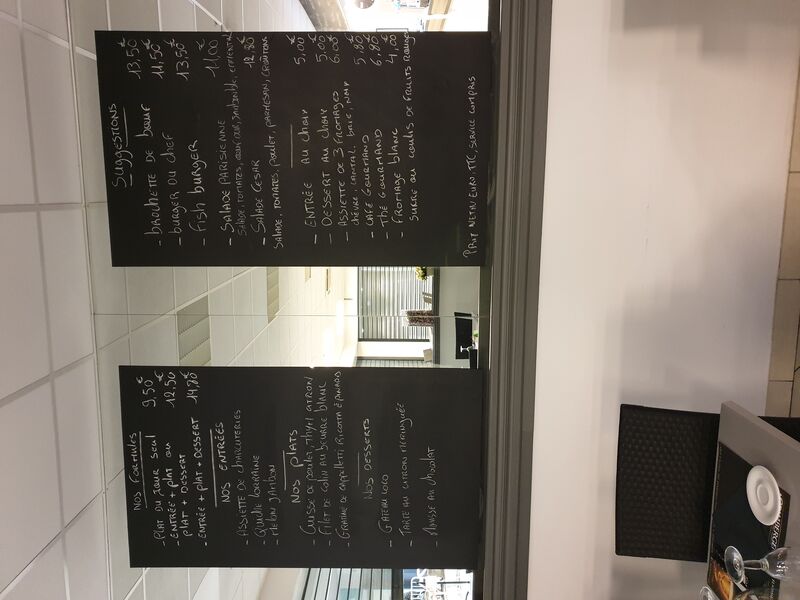 Nos formules
- Plat du jour seul 9,50€
- Entrée + plat ou 12,50€
plat + dessert
- Entrée + plat + dessert 14,80€
Nos entrées
- Assiette de charcuteries
- Quiche lorraine
- Melon jambon
Nos plats
- Cuisse de poulet thym citron
- Filet de colin au beurre blanc
- Gratiné de cappelletti ricotta épinards
Nos desserts
- Gateau coco
- Tarte au citron meringuée
- Mousse au chocolat
Suggestions
- Brochette de bœuf 13,50€
- Burger du chef 11,50€
- Fish burger 13.50€
- Salade parisienne 11,00
salade, tomates, œuf dur, jambon blc, emmental
- Salade César 12,80€
salade, tomates, poulet, parmesan, croûtons
- Entrée au choix 5,00€
- Dessert au choix 5,00
- Assiette de 3 fromages 6,00€
chèvre, cantal, brie, noix
- Café gourmand 5,80€
- Thé gourmand 6,80€
- Fromage blanc 4,00€
sucre ou coulis de fruits rouges
Prix net en euro TTC, service compris